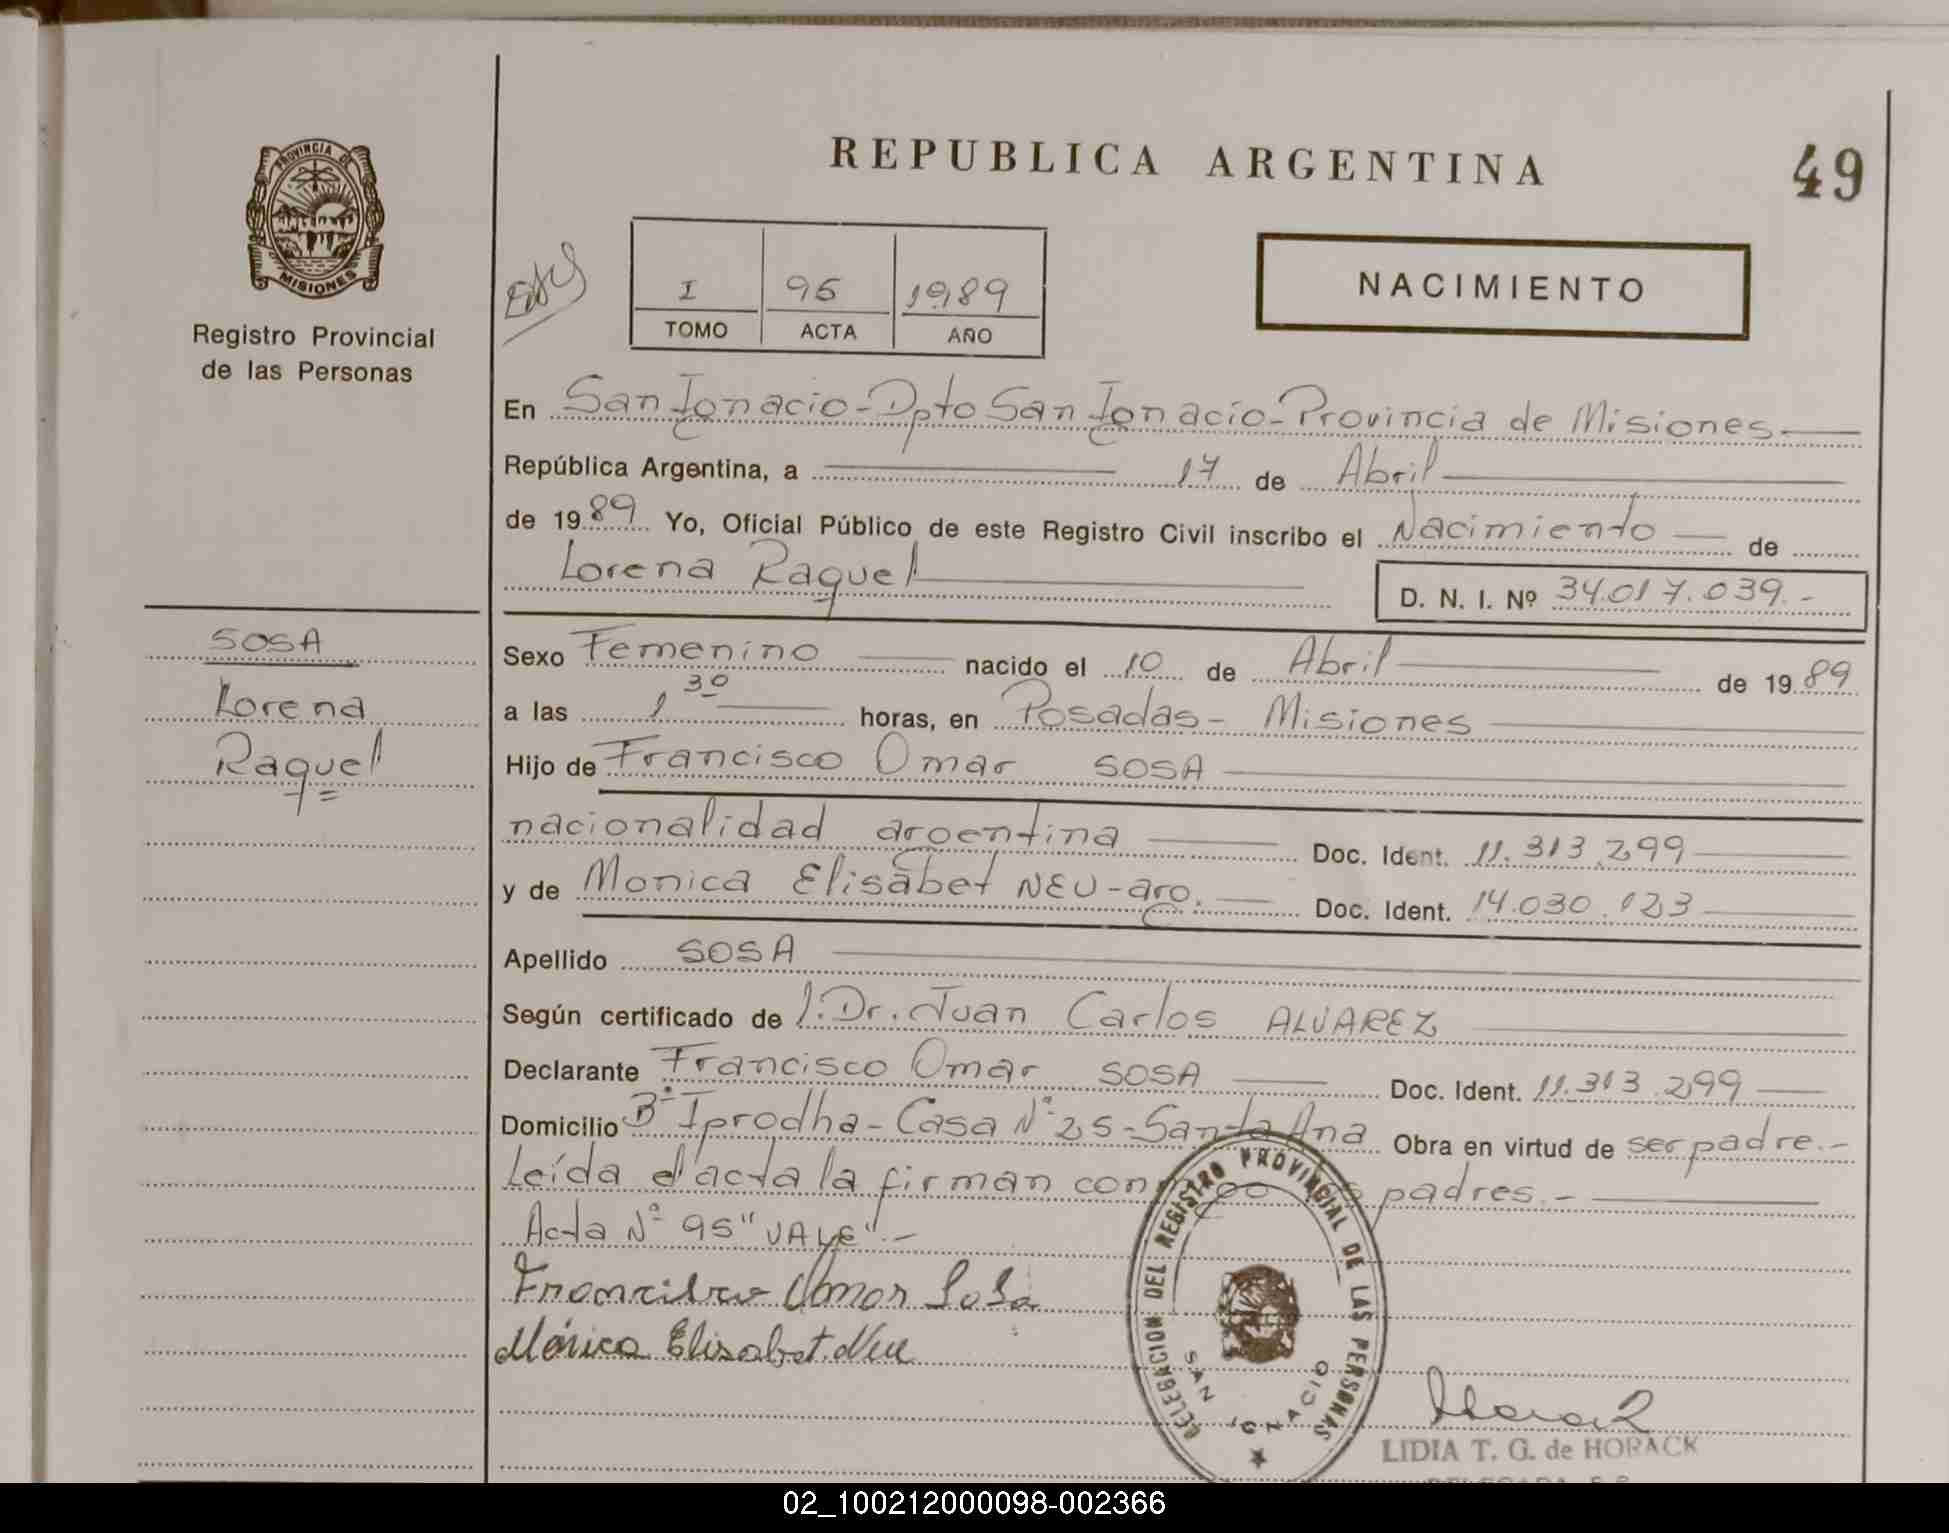 REPUBLICA ARGENTINA
49
PROVINCIA DE
MISIONES
Registro Provincial
de las Personas
I 95 1989
TOMO ACTA AÑO
NACIMIENTO
En San Ignacio - Dpto San Ignacio - Provincia de Misiones
República Argentina, a 17 de Abril
de 1989 Yo, Oficial Público de este Registro Civil inscribo el Nacimiento de
Lorena Raquel
D. N. I. Nº 34.017.039.-
SOSA
Lorena
Raquel
Sexo Femenino nacido el 10 de Abril de 1989
a las 1 30 horas, en Posadas - Misiones
Hijo de Francisco Omar SOSA
nacionalidad argentina Doc. Ident. 11.313.299
y de Monica Elisabet NEU - arg. Doc. Ident. 14.030.123
Apellido SOSA
Según certificado de l. Dr. Juan Carlos ALVAREZ
Declarante Francisco Omar SOSA Doc. Ident. 11.313.299
Domicilio Bº Iprodha - Casa Nº 25 - Santa Ana Obra en virtud de ser padre.-
Leída el acta la firman padres.-
Acta Nº 95 "VALE".-
Francisco Omar Sosa
Mónica Elisabet Neu
DELEGACION DEL REGISTRO PROVINCIAL DE LAS PERSONAS
SAN IGNACIO
LIDIA T. G. de HORACK
02_100212000098-002366